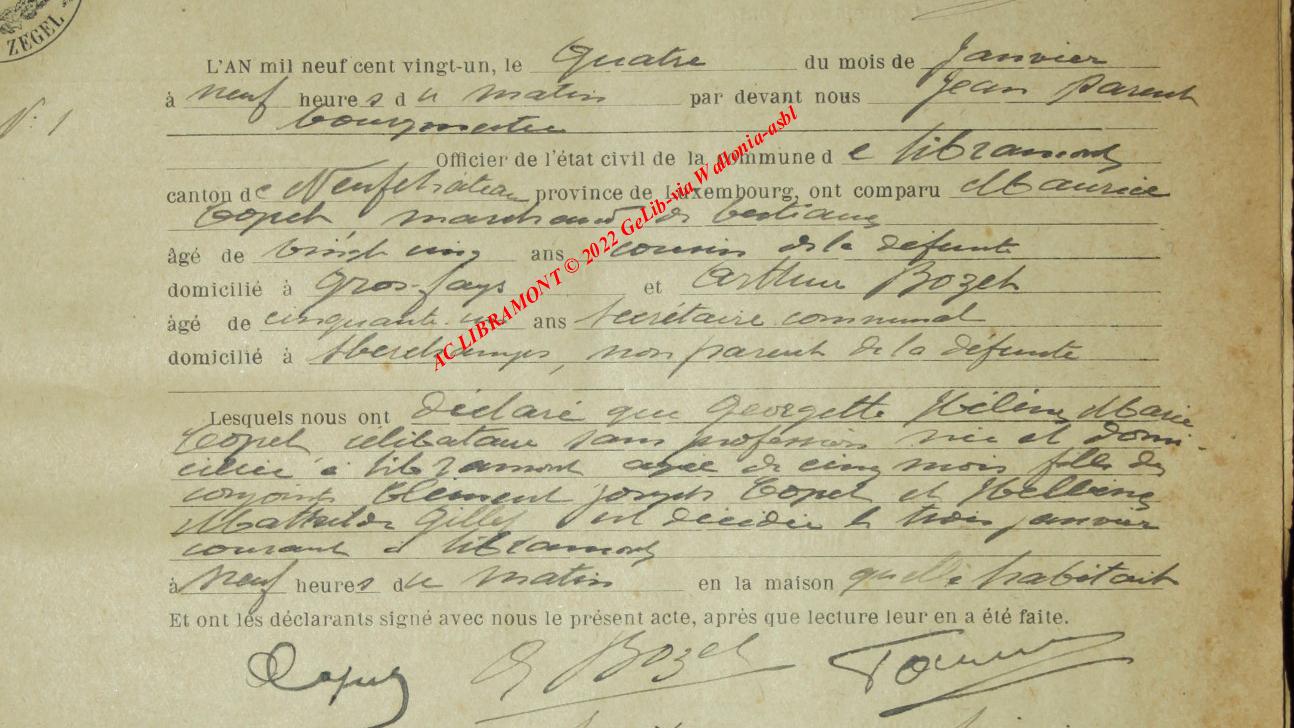 ZEGEL
L'AN mil neuf cent vingt-un, le Quatre du mois de Janvier
N. 1
à neuf heures du matin par devant nous Jean Parent
bourgmestre
Officier de l'état civil de la commune de Libramont
canton de Neufchâteau province de Luxembourg, ont comparu Maurice
Copet marchand de bestiaux
âgé de vingt cinq ans cousin de la défunte
domicilié à Gros-fays et Arthur Bozet
âgé de cinquante un ans secrétaire communal
domicilié à , non parent de la défunte
Lesquels nous ont déclaré que Georgette Hélène Marie
Copet célibataire sans profession née et domi-
ciliée à Libramont agée de cinq mois fille des
conjoints Clément Joseph Copet et
Gilles est décédée le trois janvier
courant à Libramont
à Neuf heures du matin en la maison quelle habitait
Et ont les déclarants signé avec nous le présent acte, après que lecture leur en a été faite.
Copet Bozet
AC LIBRAMONT © 2022 GeLib-via Wallonia-asbl